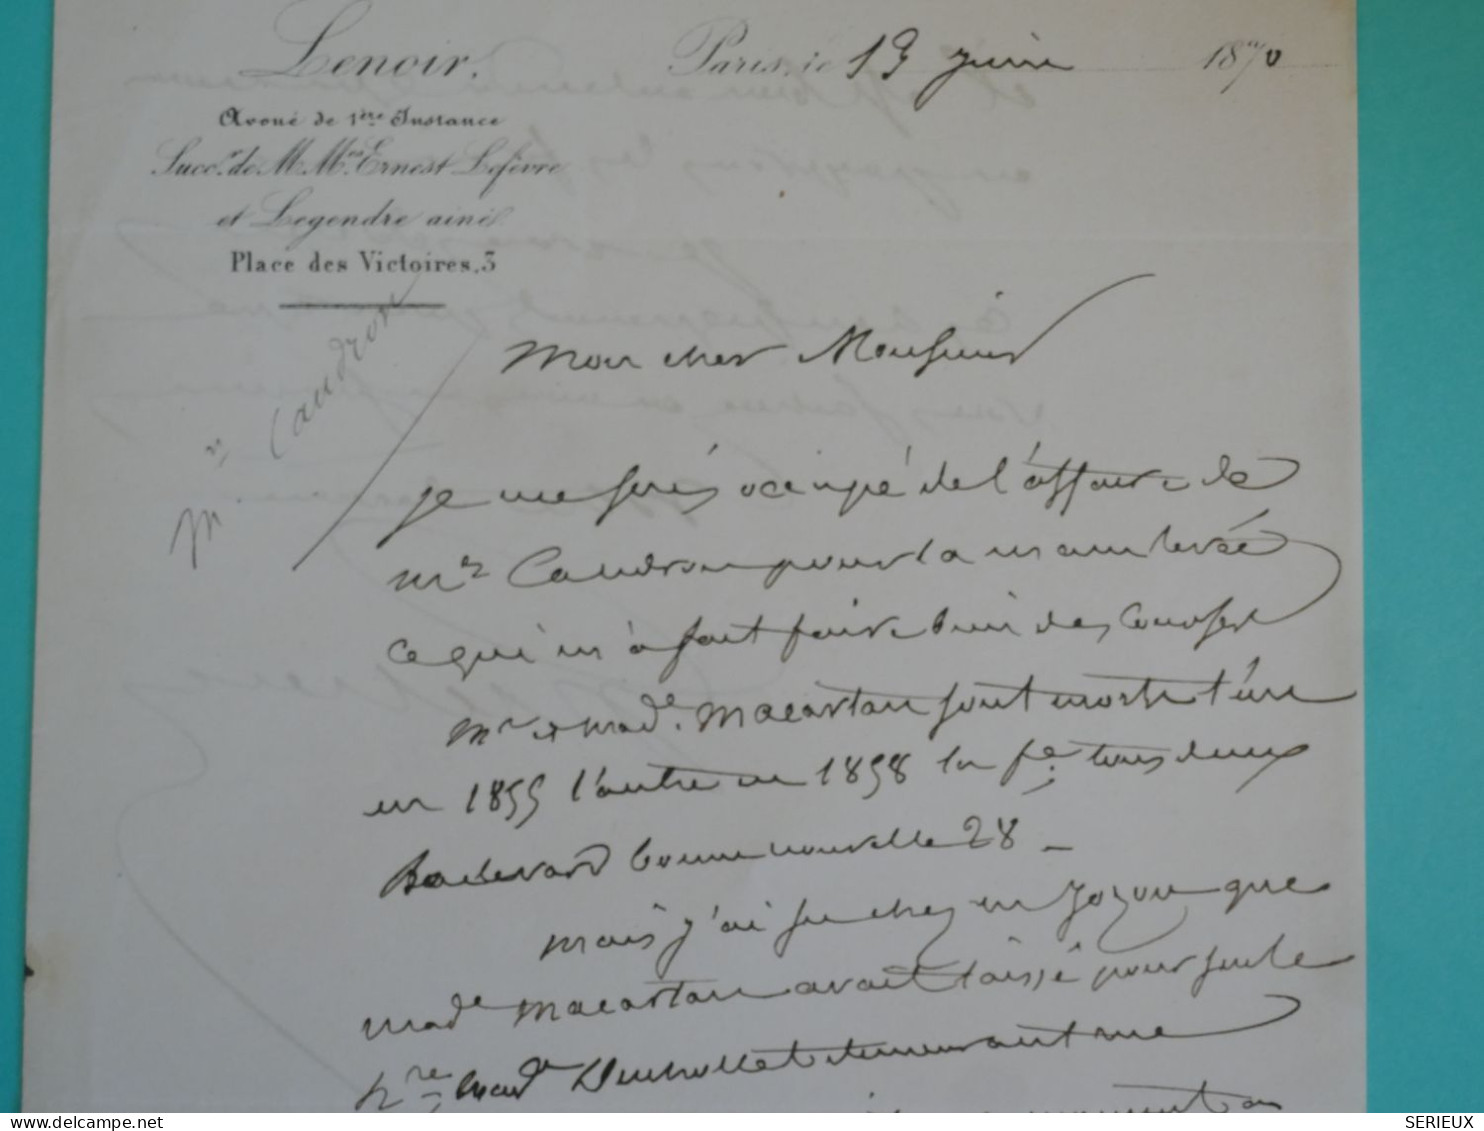 Lenoir.
Paris, le 13 juin 1870
Avoué de 1ère Instance
Succr. de M Mes Ernest Lefèvre
et Legendre ainé
Place des Victoires, 3
Mr Caudron
Mon cher Monsieur
je me suis occupé de l'affaire de
Mr Caudron pour la main levée
ce qui m'a fait faire bien des courses
Mr et made. Macartan sont morts l'un
en 1855 l'autre en 1858 la fe. tous deux
Boulevard bonne nouvelle 28 _
mais j'ai su chez Me Jozon que
made Macartan avait laissé pour seule
hre made demeurant rue
SERIEUX
delcampe.net